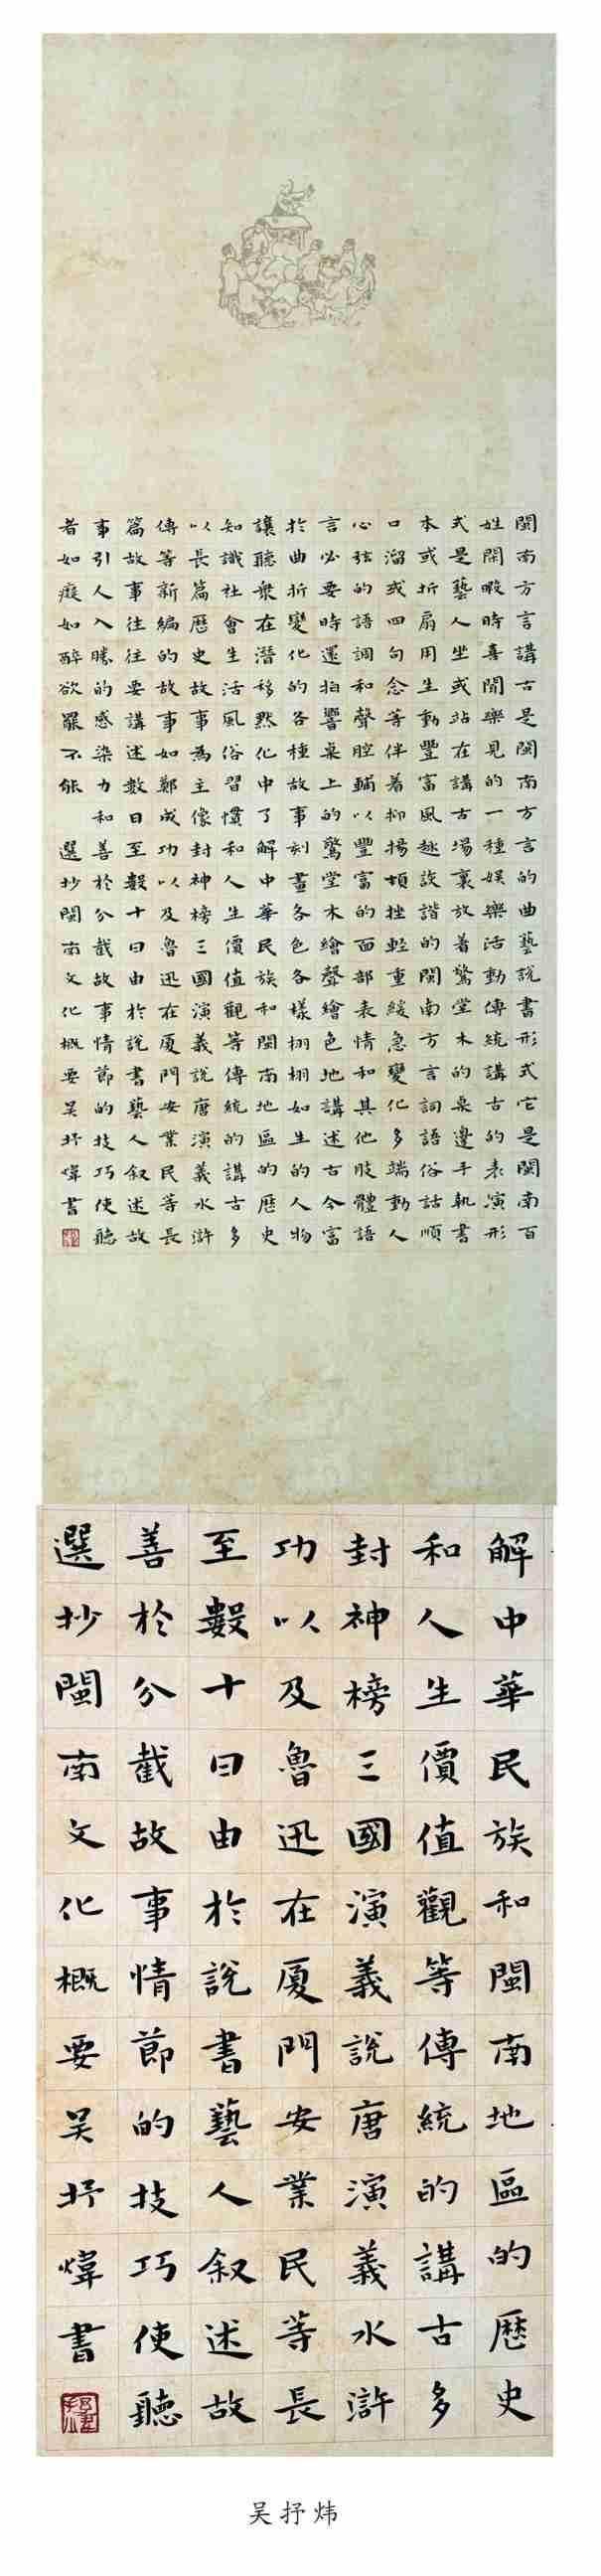 閩南方言講古是閩南方言的曲藝說書形式它是閩南百
姓閑暇時喜聞樂見的一種娛樂活動傳統講古的表演形
式是藝人坐或站在講古場裏放着驚堂木的桌邊手執書
本或折扇用生動豐富風趣詼諧的閩南方言詞語俗話順
口溜或四句念等伴着抑揚頓挫輕重緩急變化多端動人
心弦的語調和聲腔輔以豐富的面部表情和其他肢體語
言必要時還拍響桌上的驚堂木繪聲繪色地講述古今富
於曲折變化的各種故事刻畫各色各樣栩栩如生的人物
讓聽衆在潛移默化中了解中華民族和閩南地區的歷史
知識社會生活風俗習慣和人生價值觀等傳統的講古多
以長篇歷史故事為主像封神榜三國演義說唐演義水滸
傳等新編的故事如鄭成功以及魯迅在厦門安業民等長
篇故事往往要講述數日至數十日由於說書藝人叙述故
事引人入勝的感染力和善於分截故事情節的技巧使聽
者如癡如醉欲罷不能 選抄閩南文化概要吴抒煒書
解中華民族和閩南地區的歷史
和人生價值觀等傳統的講古多
封神榜三國演義說唐演義水滸
功以及魯迅在厦門安業民等長
至數十日由於說書藝人叙述故
善於分截故事情節的技巧使聽
選抄閩南文化概要吴抒煒書
吴抒炜